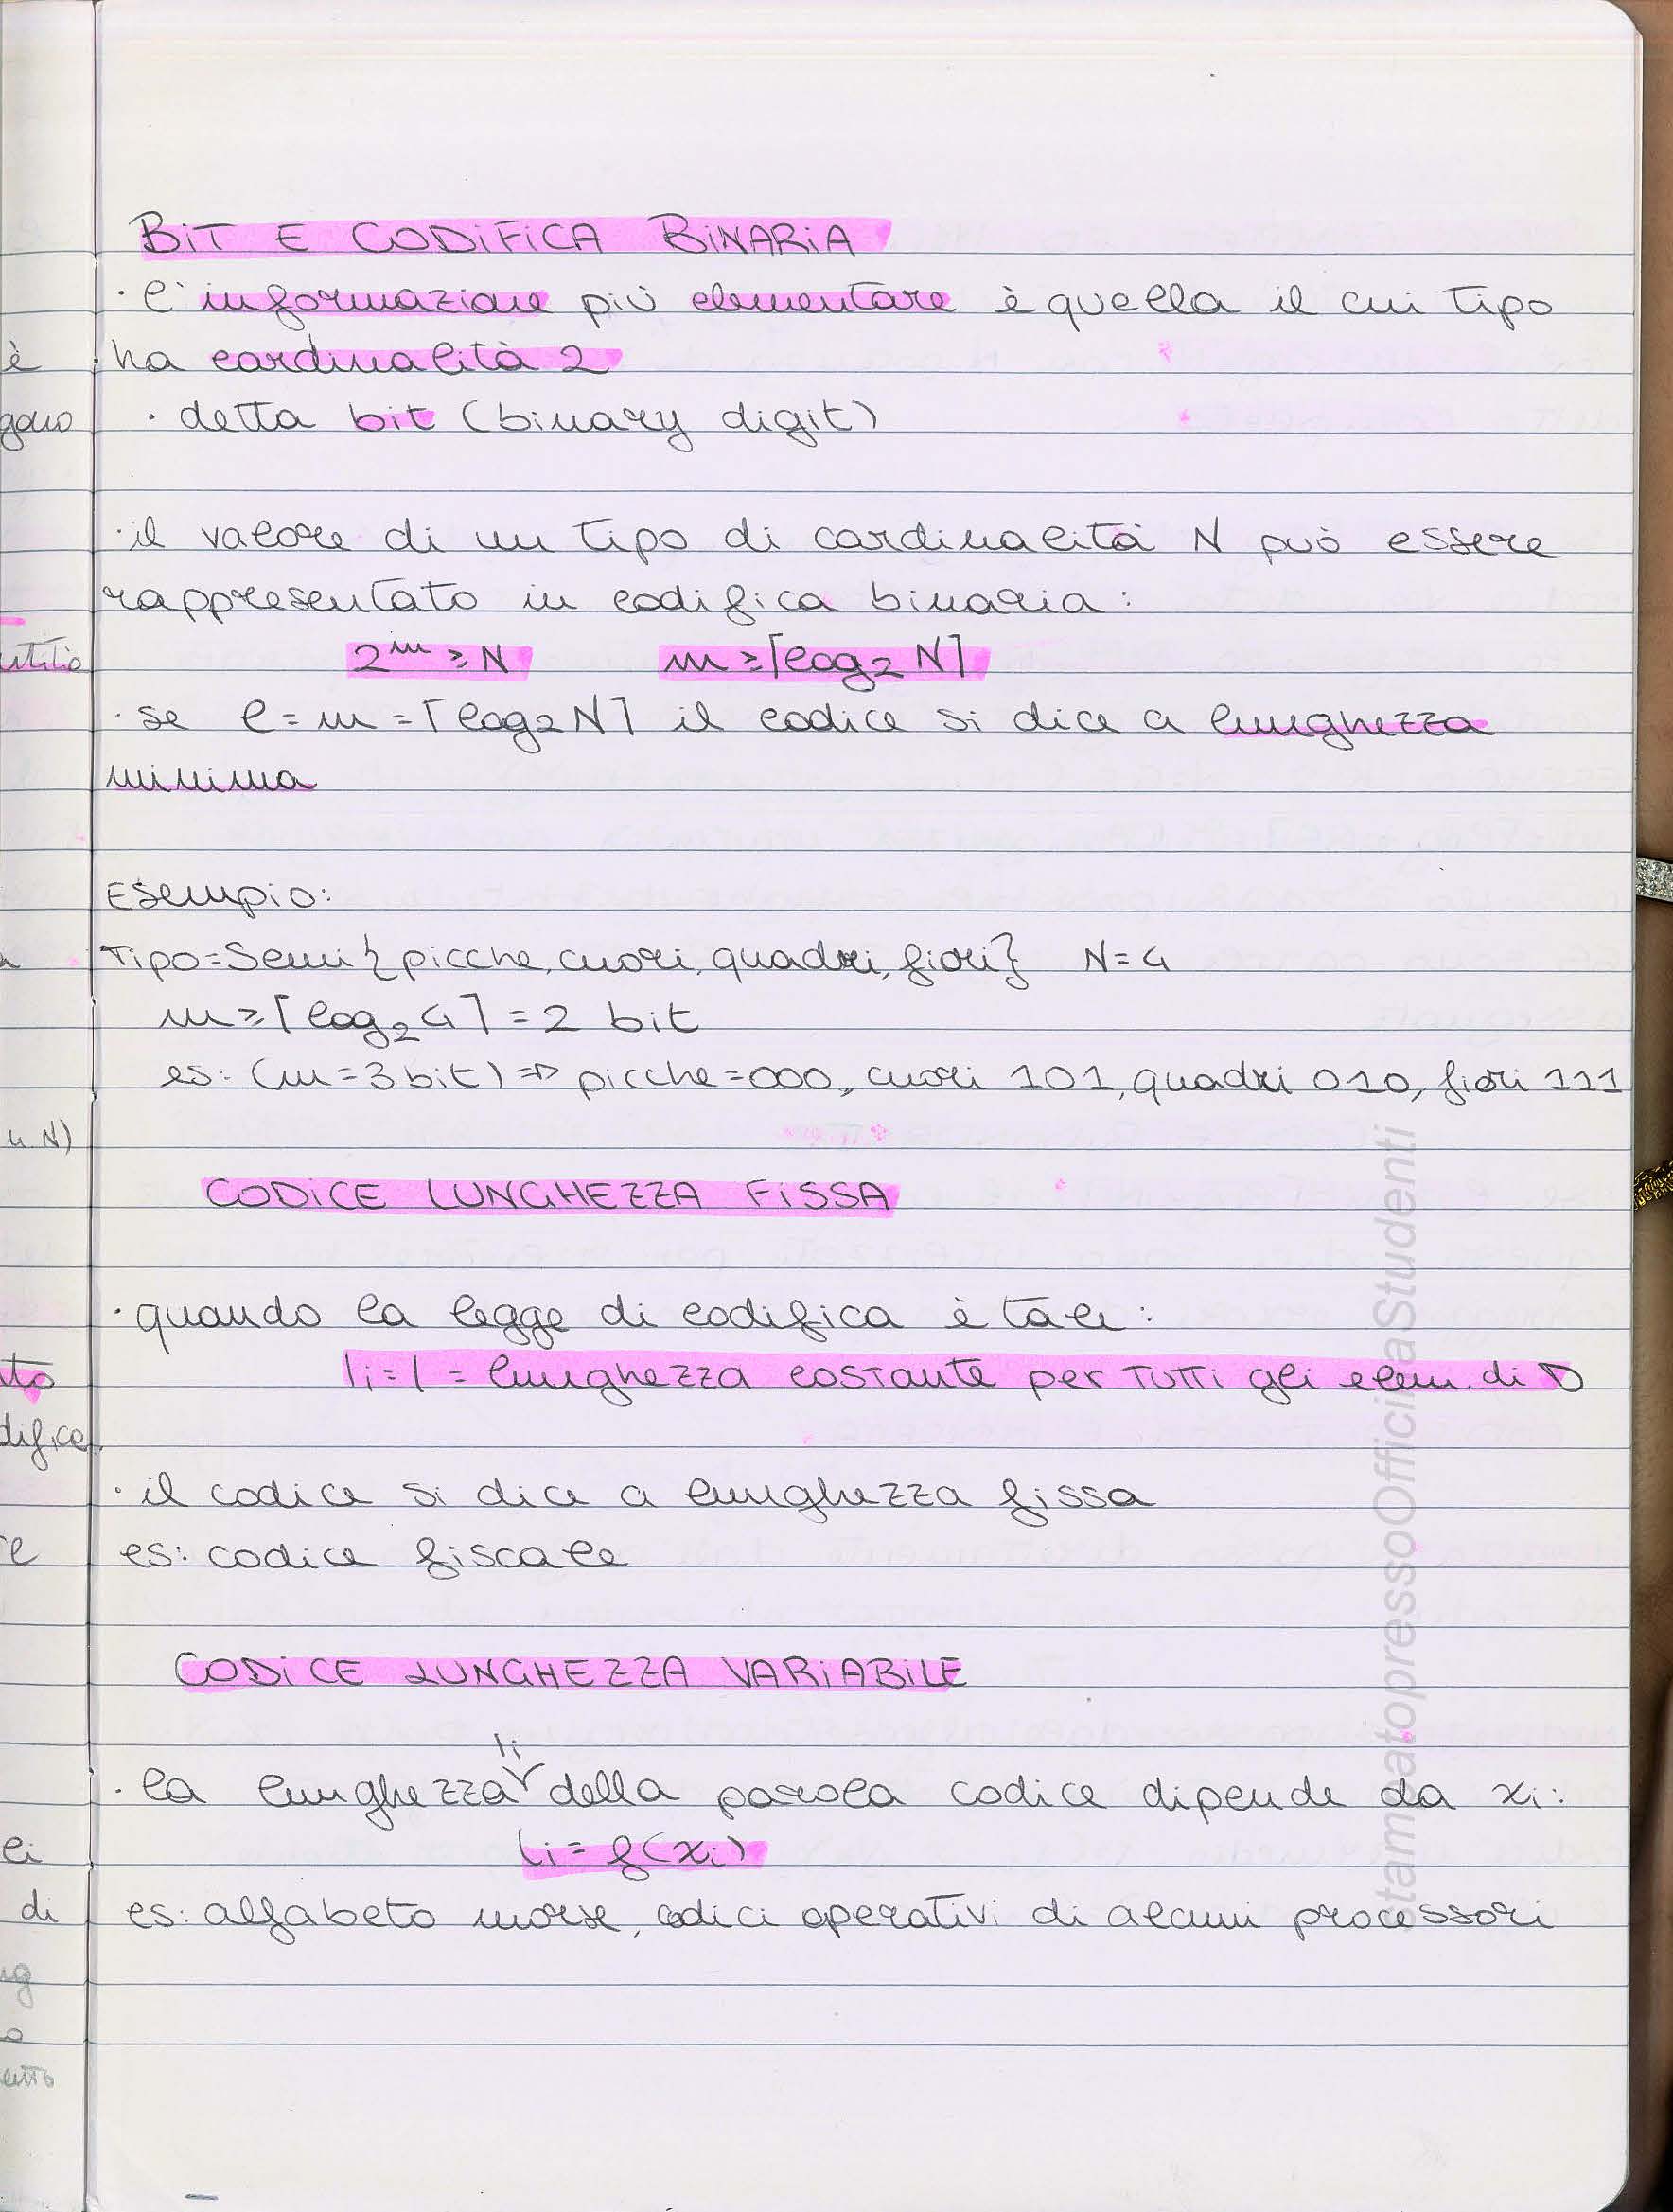 BIT E CODIFICA BINARIA
· l'informazione più elementare è quella il cui tipo
ha cardinalità 2
· detta bit (binary digit)
· il valore di un tipo di cardinalità N può essere
rappresentato in codifica binaria:
2^m ≥ N m ≥ ⌈log₂ N⌉
· se l = m = ⌈log₂ N⌉ il codice si dice a lunghezza
minima
Esempio:
Tipo = Semi {picche, cuori, quadri, fiori} N = 4
m ≥ ⌈log₂ 4⌉ = 2 bit
es: (m = 3 bit) => picche = 000, cuori 101, quadri 010, fiori 111
CODICE LUNGHEZZA FISSA
· quando la legge di codifica è tale:
li = l = lunghezza costante per tutti gli elem. di D
· il codice si dice a lunghezza fissa
es: codice fiscale
CODICE LUNGHEZZA VARIABILE
· la lunghezza li della parola codice dipende da xi:
li = f(xi)
es: alfabeto morse, codici operativi di alcuni processori
è
gono
u N)
to
difica
re
li
di
o
StampatopressoOfficinaStudenti